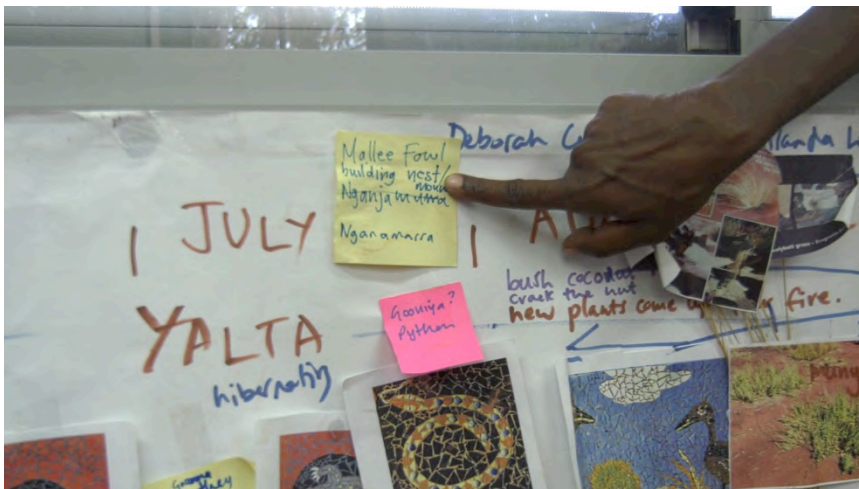 Deborah
Mallee Fowl
building nest/
Nganamarra
JULY
YALTA
hibernating
Gooniya?
Python
bush coconut
crack the nut
new plants come
fire.